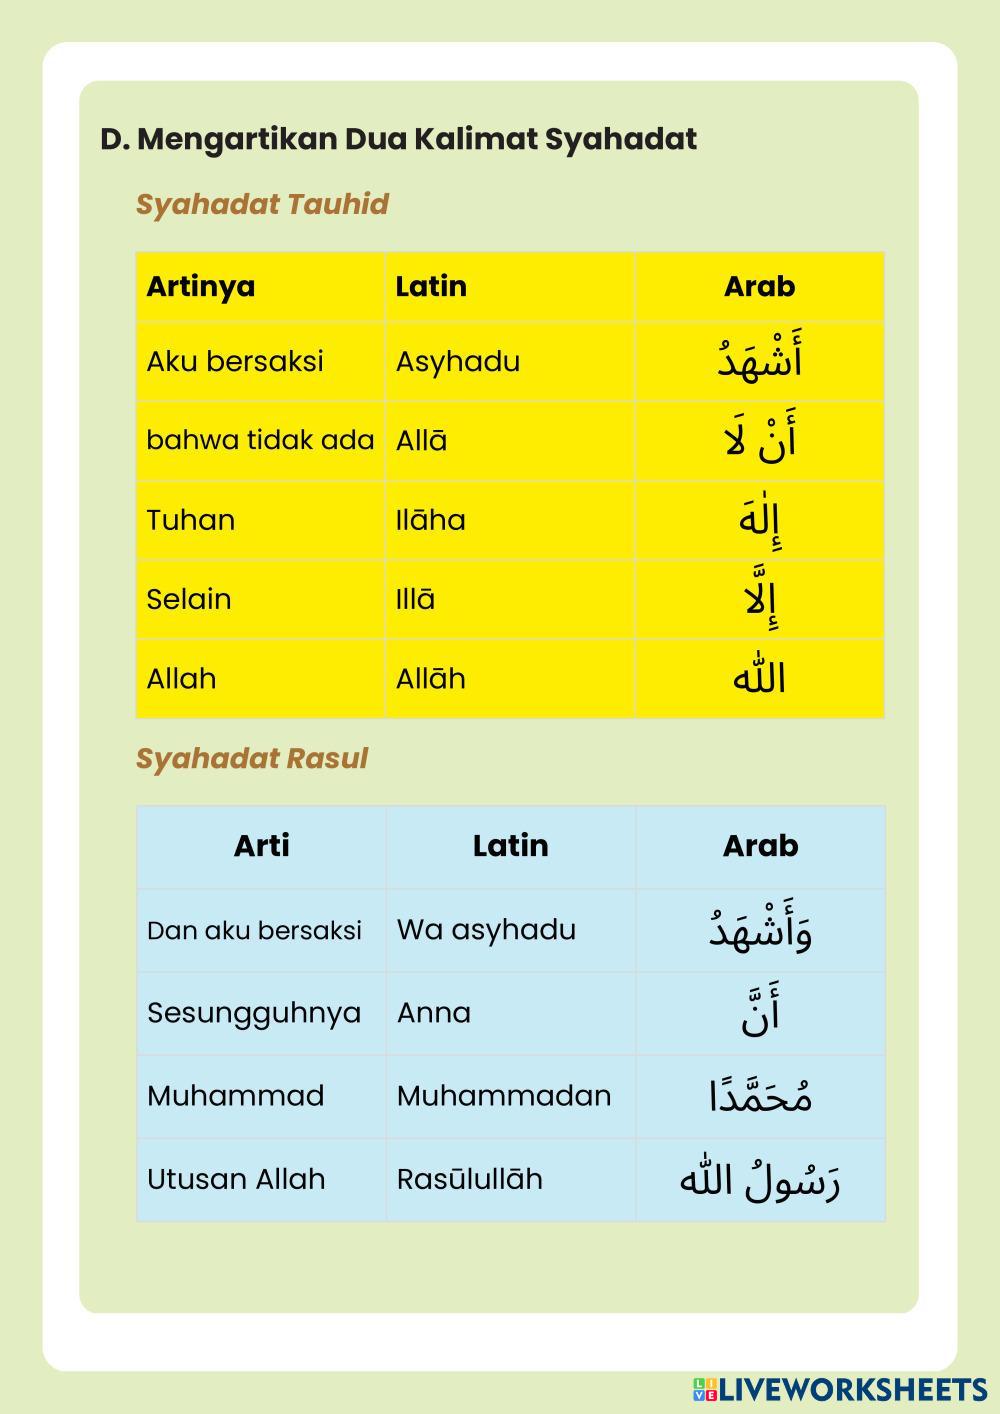 D. Mengartikan Dua Kalimat Syahadat
Syahadat Tauhid
Artinya Latin Arab
Aku bersaksi Asyhadu أَشْهَدُ
bahwa tidak ada Allā أَنْ لَا
Tuhan Ilāha إِلٰهَ
Selain Illā إِلَّا
Allah Allāh اللّٰه
Syahadat Rasul
Arti Latin Arab
Dan aku bersaksi Wa asyhadu وَأَشْهَدُ
Sesungguhnya Anna أَنَّ
Muhammad Muhammadan مُحَمَّدًا
Utusan Allah Rasūlullāh رَسُولُ اللّٰه
LIVE LIVEWORKSHEETS